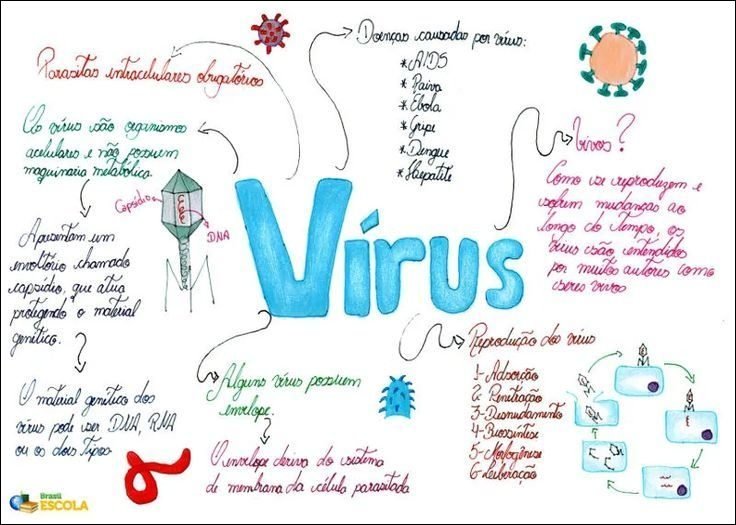 Vírus
Parasitas intracelulares obrigatórios
Os vírus são organismos
acelulares e não possuem
maquinaria metabólica.
Apresentam um
envoltório chamado
capsídio, que atua
protegendo o material
genético.
O material genético dos
vírus pode ser DNA, RNA
ou os dois tipos
Capsídio
DNA
Doenças causadas por vírus:
* AIDS
* Raiva
* Ebola
* Gripe
* Dengue
* Hepatite
Vivos?
Como se reproduzem e
sofrem mudanças ao
longo do tempo, os
vírus são entendidos
por muitos autores como
seres vivos
Alguns vírus possuem
envelope.
O envelope deriva do sistema
de membrana da célula parasitada
Reprodução dos vírus
1- Adsorção
2- Penitração
3- Desnudamento
4- Biossíntese
5- Morfogênese
6- Liberação
Brasil
ESCOLA